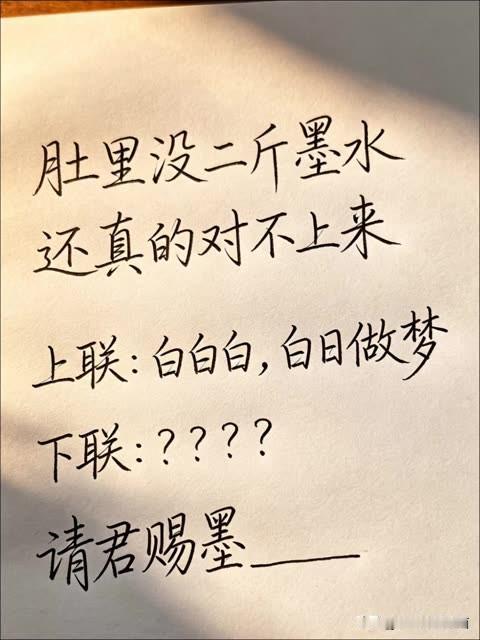 肚里没二斤墨水
还真的对不上来
上联：白白白，白日做梦
下联：？？？？
请君赐墨____